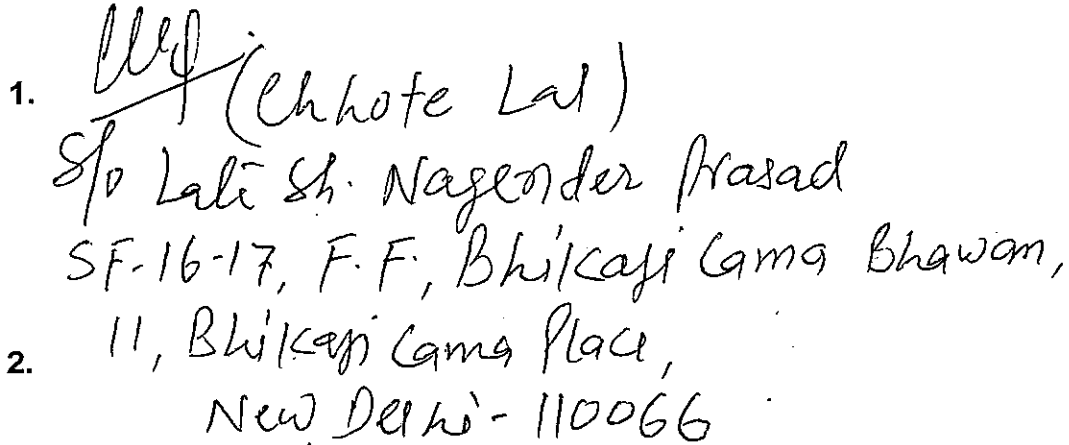 1. (Chhote Lal)
S/o Late Sh. Nagender Prasad
SF-16-17, F.F., Bhikaji Cama Bhawan,
11, Bhikaji Cama Place,
2.
New Delhi - 110066